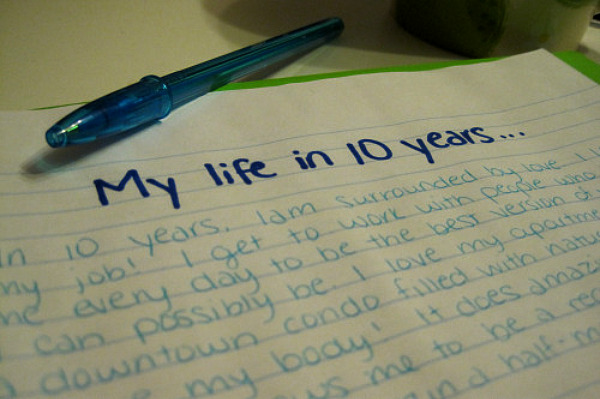 My life in 10 years...
In 10 years, I am surrounded by love. I
my job! I get to work with people who
me every day to be the best version of
I can possibly be. I love my apartme
a downtown condo filled with natu
my body! It does amazin
me to be a re
and half-m